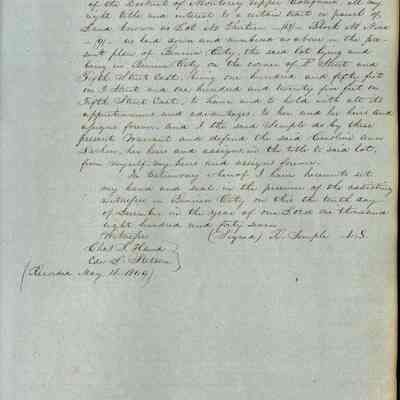 of the District of Monterey Upper California, all my
right title and interest to a certain tract or parcel of
Land known as Lot No Thirteen -13- Block No Nine
-9- as laid down and numbered as above in the pre
sent plan of Benicia City, the said lot lying and
being in Benicia City on the corner of I Street and
Fifth Street East, being one hundred and fifty feet
on I Street and one hundred and twenty five feet on
Fifth Street East, to have and to hold with all its
appurtenances and advantages, to her and her heirs and
assigns forever, and I the said Semple do by these
present Warrant and defend the said Caroline Ann
her heirs and assigns in the title to said lot,
from myself my heirs and assigns forever.
In testimony whereof I have hereunto set
my hand and seal in the presence of the attesting
witnesses in Benicia City on this the tenth day
of December in the year of our Lord one thousand
eight hundred and forty seven
Witnesses (Signed) R. Semple L.S.
Chas S. Hand
Edw S. Stetson
(Recorded May 18. 1849)